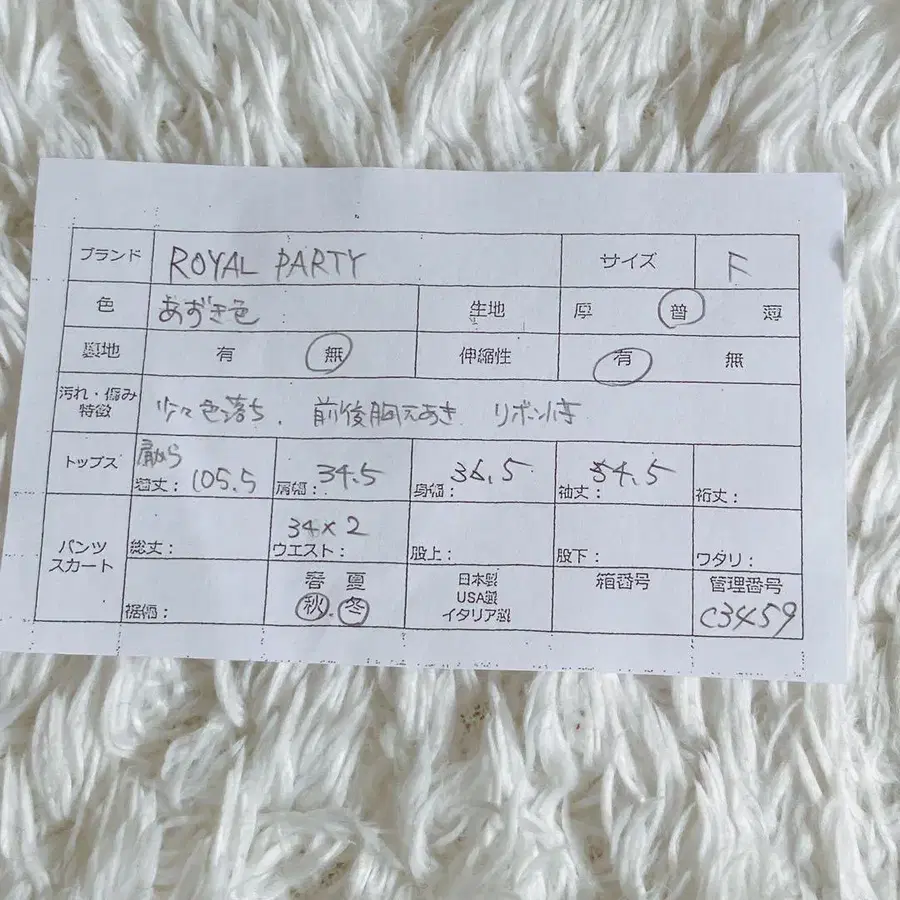 ブランド ROYAL PARTY サイズ F
色 あずき色 生地 厚 普 薄
裏地 有 無 伸縮性 有 無
汚れ・傷み
特徴
少々色落ち、前後胸元あき リボン付き
トップス 肩から
着丈: 105.5 肩幅: 34.5 身幅: 36.5 袖丈: 54.5 裄丈:
パンツ
スカート
総丈: 34×2
ウエスト: 股上: 股下: ワタリ:
裾幅: 春 夏
秋 冬
日本製
USA製
イタリア製
箱番号 管理番号
C3459